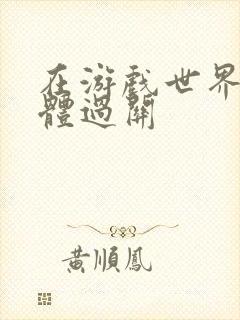 在游戏世界
體過關
黃順鳳